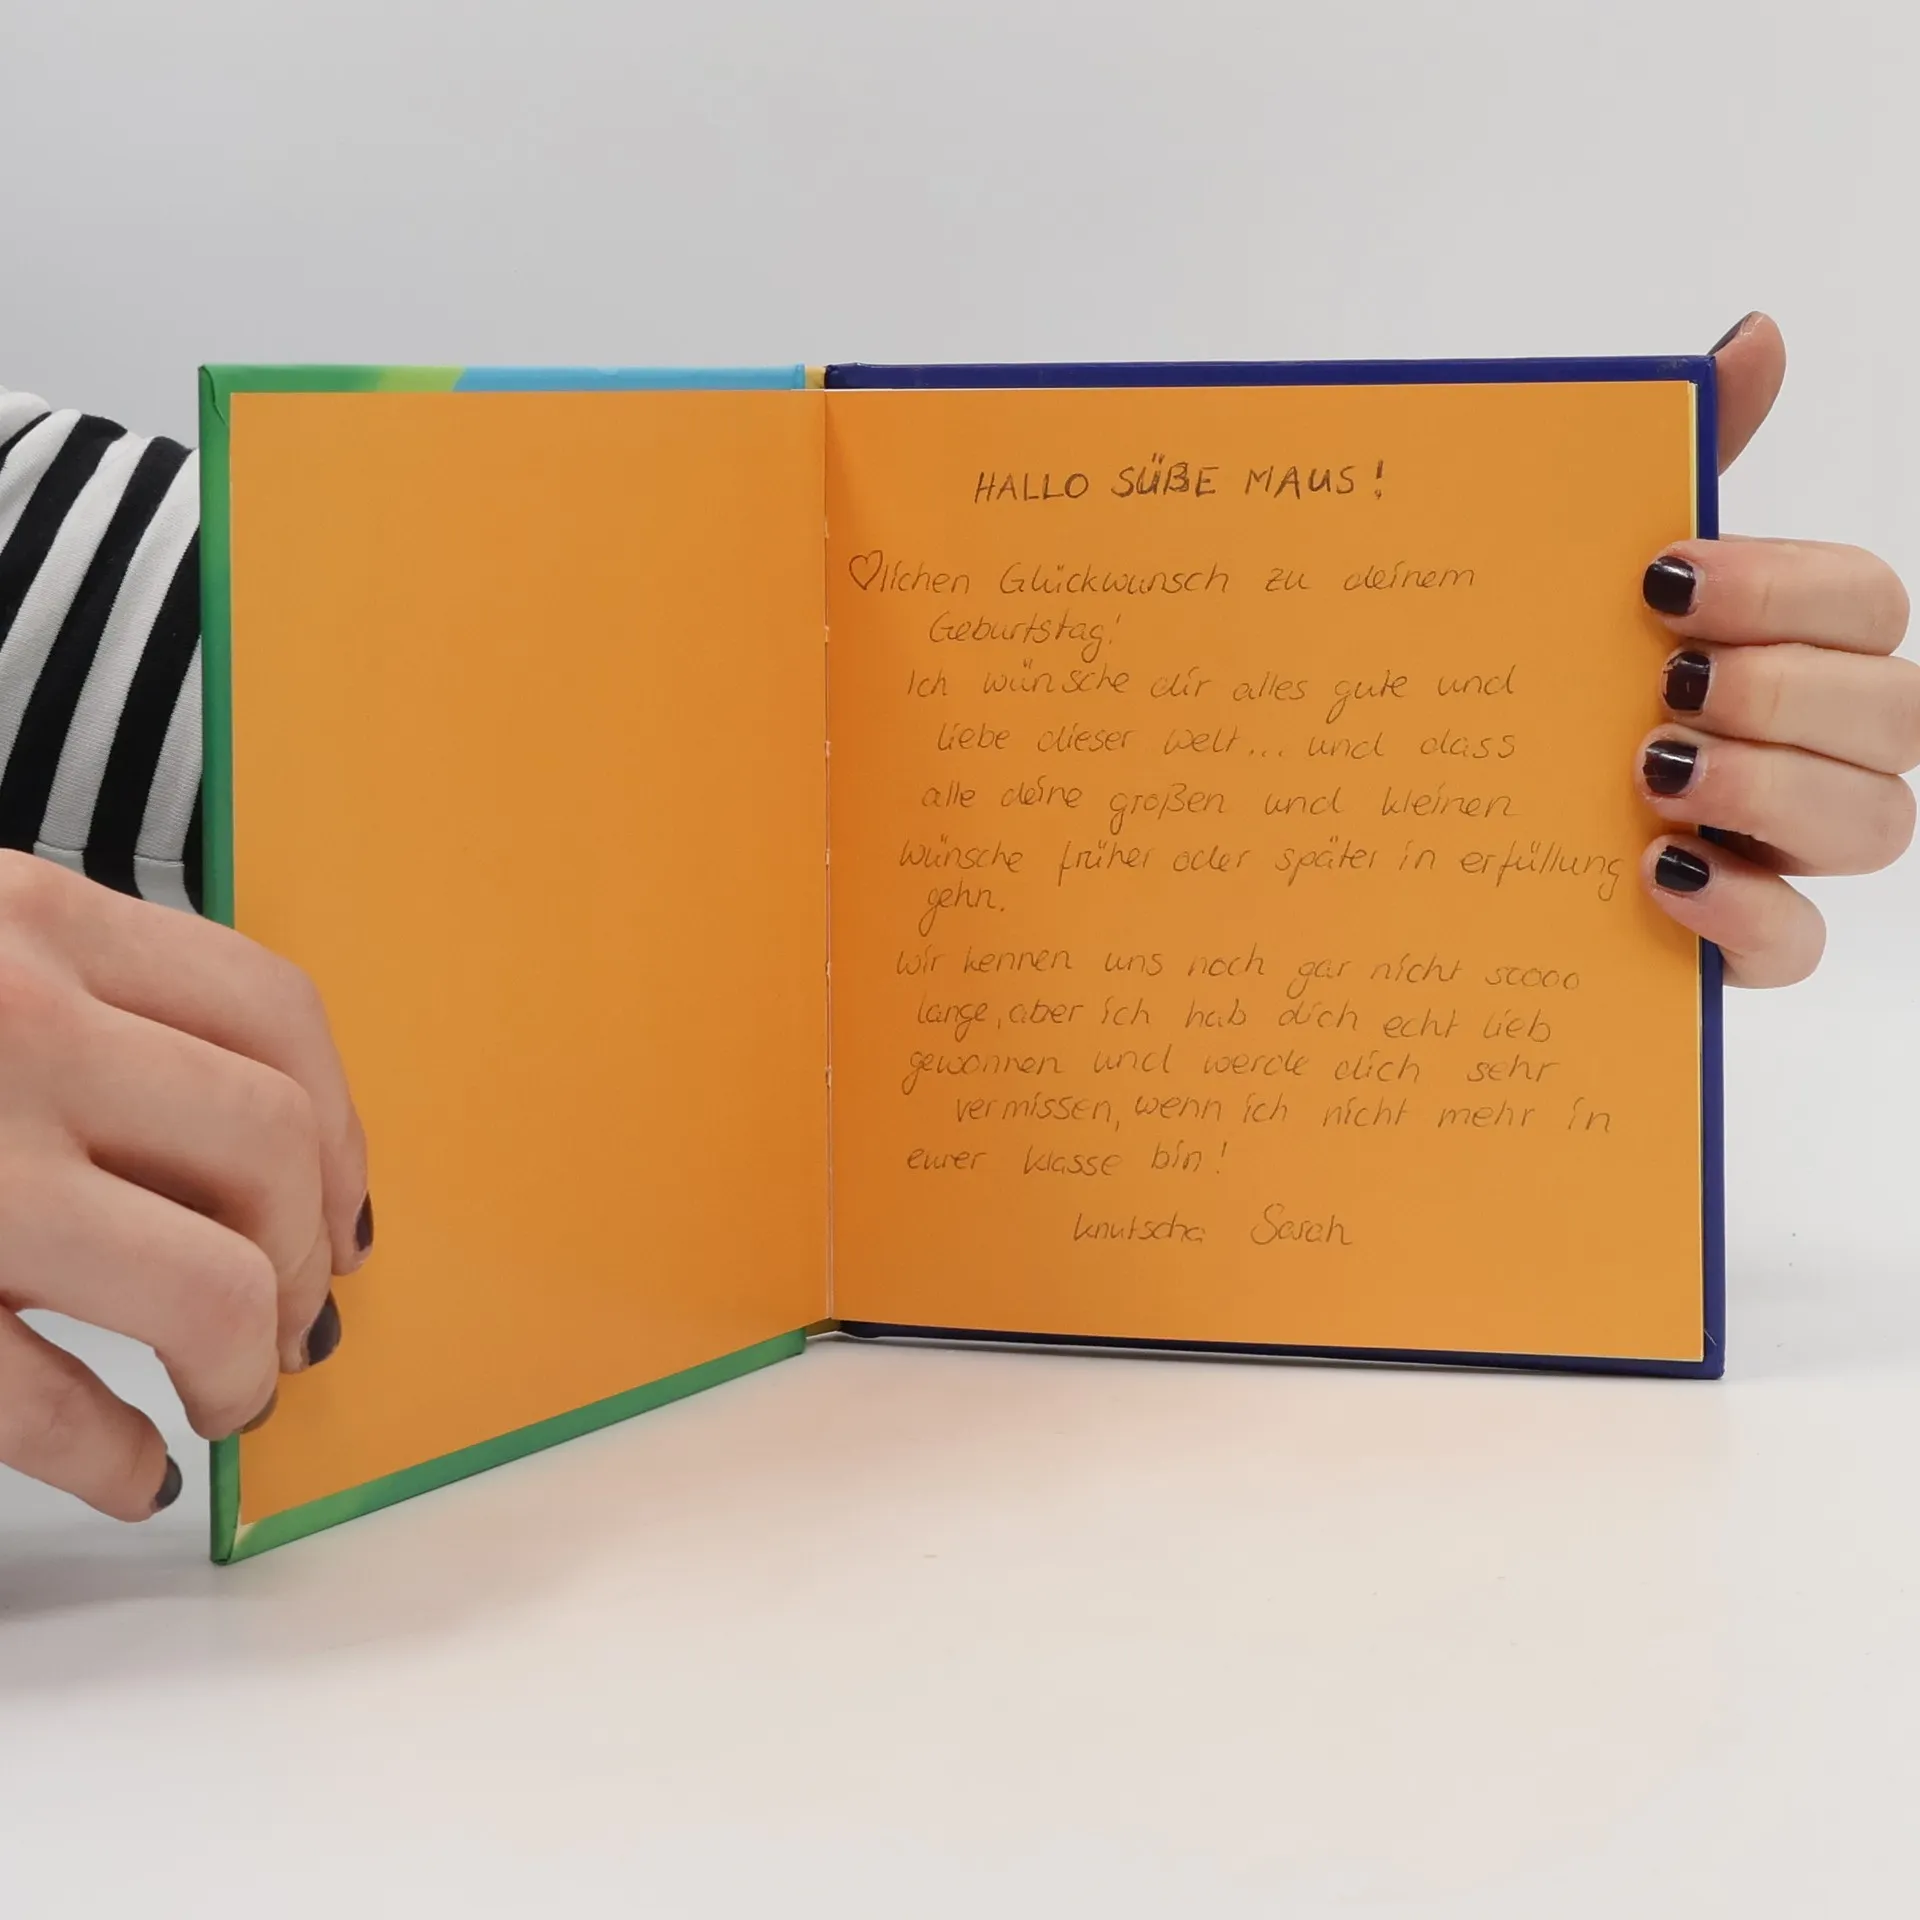 HALLO SÜßE MAUS!
♡lichen Glückwunsch zu deinem
Geburtstag!
Ich wünsche dir alles gute und
liebe dieser welt... und dass
alle deine großen und kleinen
wünsche früher oder später in erfüllung
gehn.
wir kennen uns noch gar nicht soooo
lange, aber ich hab dich echt lieb
gewonnen und werde dich sehr
vermissen, wenn ich nicht mehr in
eurer klasse bin!
knutscha Sarah